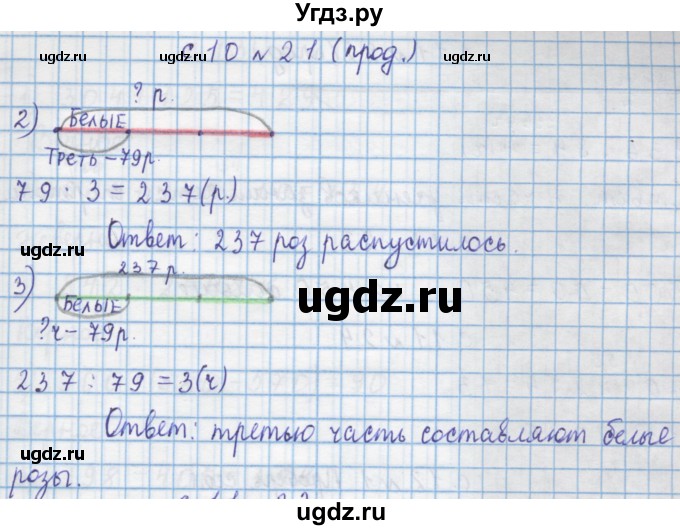 Угдз.ру
с. 10 № 21 (прод.)
ugdz.ru ugdz.ru
? р.
2) БЕЛЫЕ
ugdz.ru
Треть – 79 р.
79 · 3 = 237 (р.)
ugdz.ru
Ответ: 237 роз распустилось.
ugdz.ru
237 р.
3) БЕЛЫЕ
ugdz.ru
?ч – 79 р.
ugdz.ru
237 : 79 = 3 (ч)
Ответ: третью часть составляют белые
ugdz.ru ugdz.ru
розы.
Угдз.ру